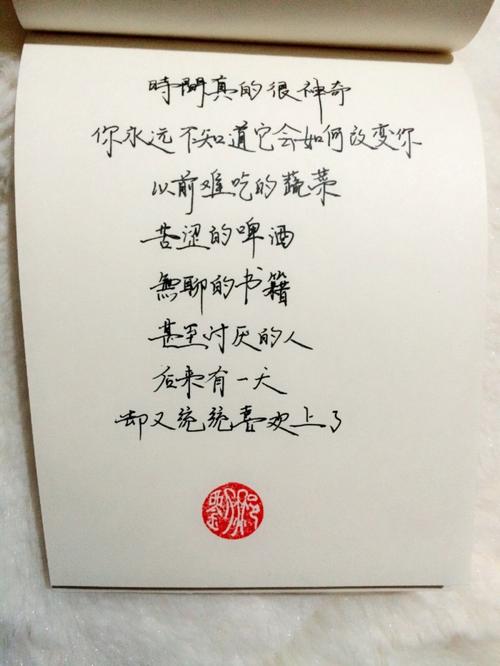 時間真的很神奇
你永远不知道它会如何改变你
以前难吃的蔬菜
苦涩的啤酒
無聊的书籍
甚至讨厌的人
后来有一天
却又统统喜欢上了